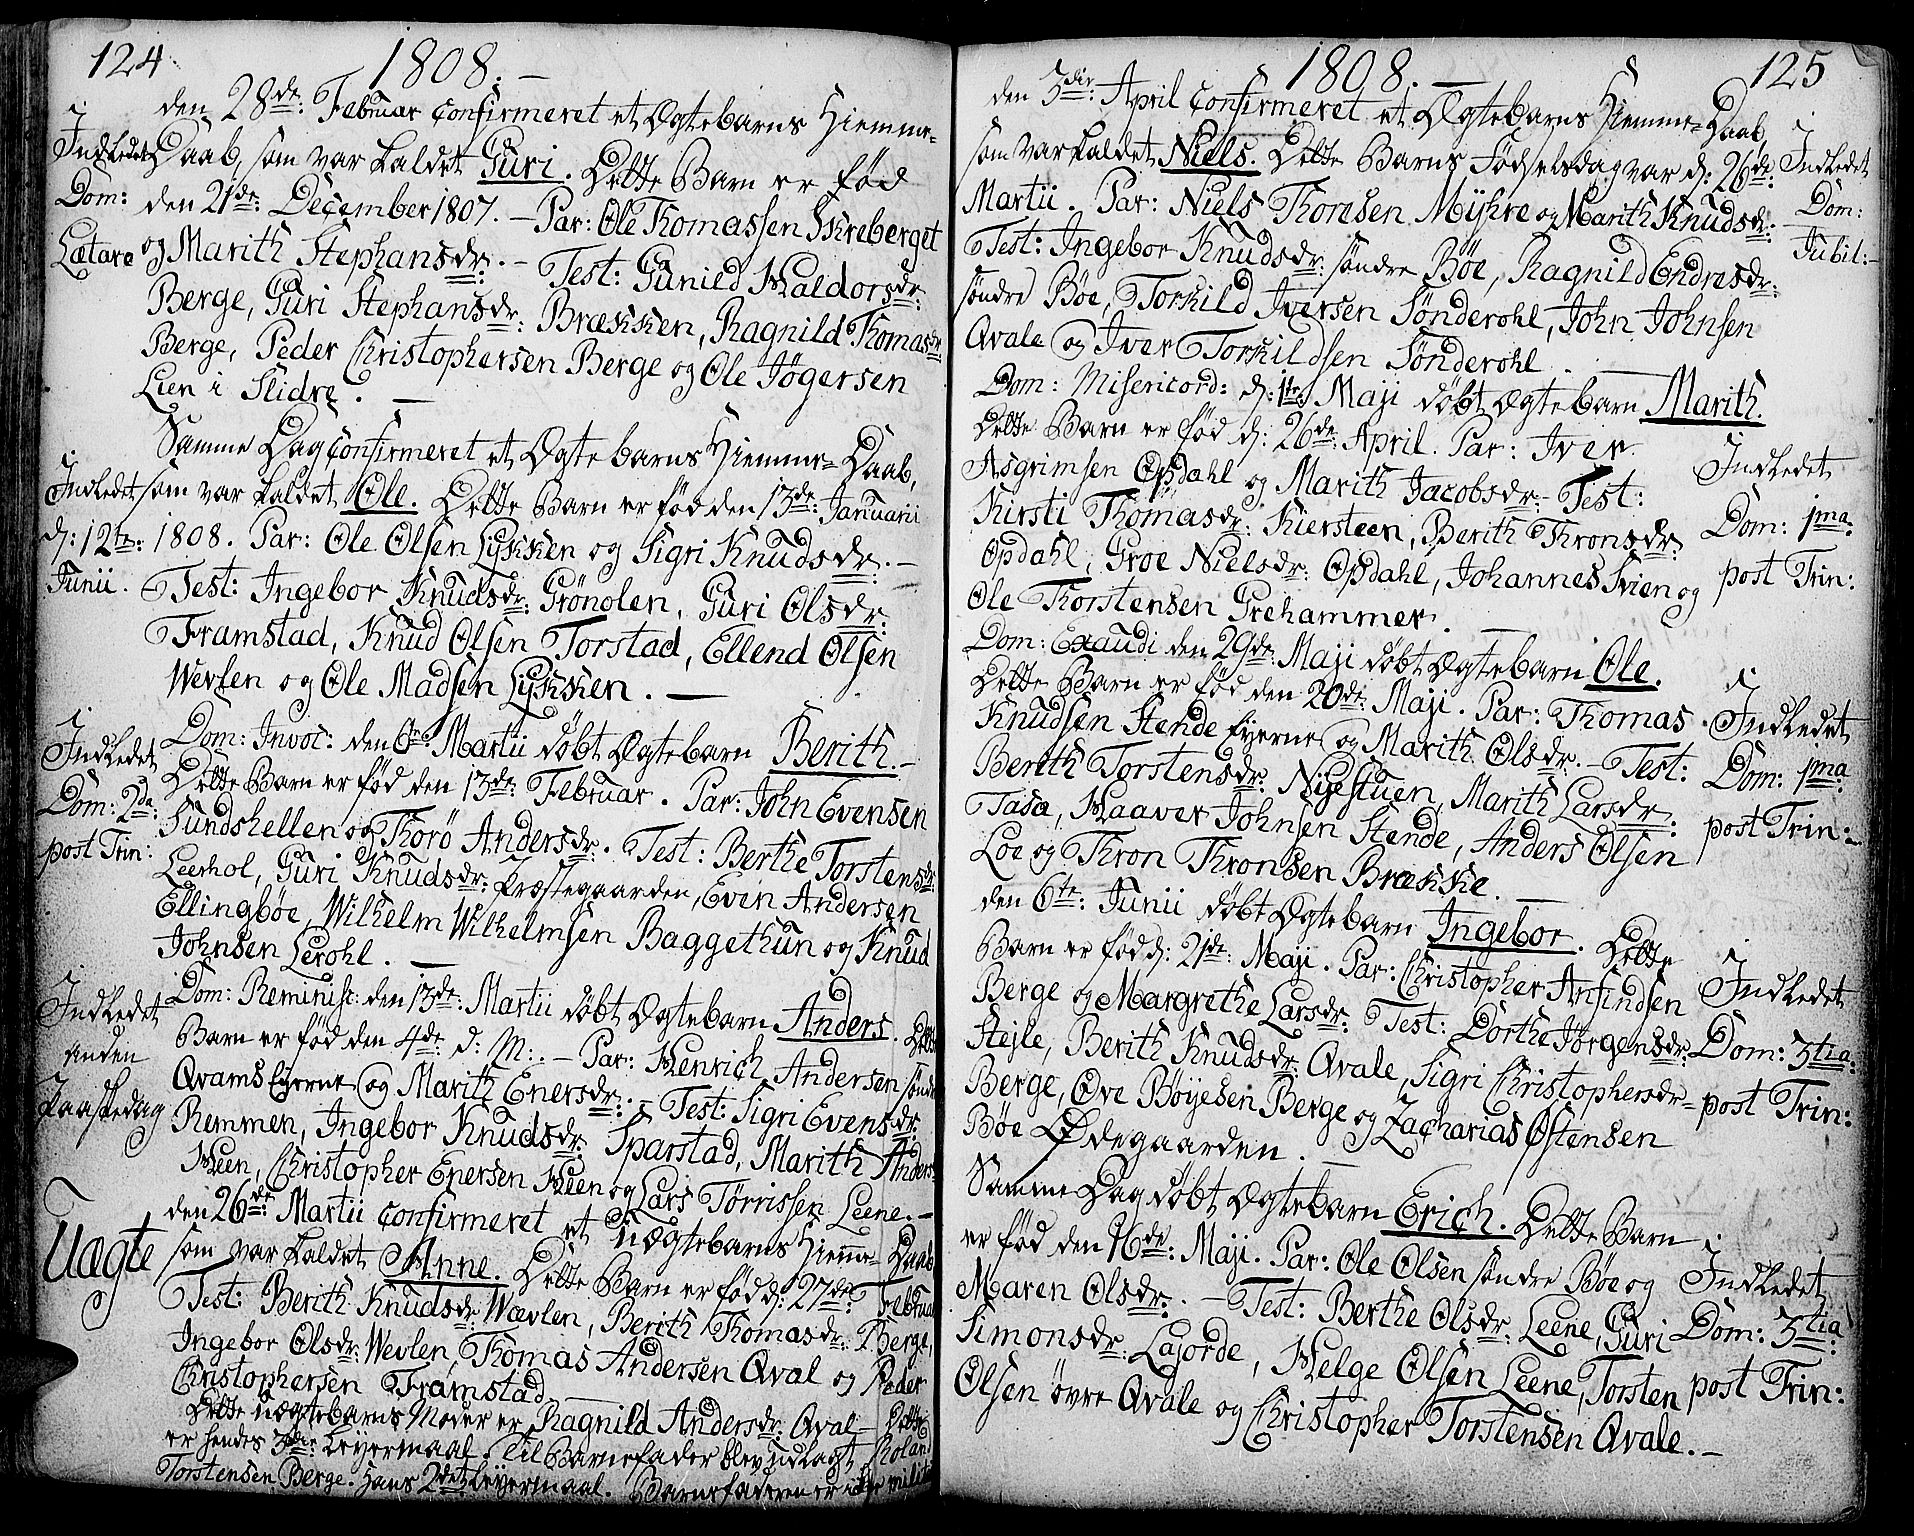 124
1808. —
den 28de: Februar confirmeret et Ægtebarns Hiemme-
Daab, som var kaldet Guri. Dette Barn er fød
den 21de: December 1807. — Par: Ole Thomassen Skreberget
og Marith Stephansdr: — Test: Gunild Haldorsdr:
Berge, Guri Stephansdr: Brækken, Ragnild Thomasdr
Berge, Peder Christophersen Berge og Ole Jøgersen
Lien i Slidre. —
Indledet
Dom:
Lætare
Samme Dag confirmeret et Ægtebarns Hiemme-Daab,
som var kaldet Ole. Dette Barn er fød den 13de: Januarii
1808. Par: Ole Olsen Lykken og Sigri Knudsdr: —
Test: Ingebor Knudsdr: Grönolen, Guri Olsdr:
Framstad, Knud Olsen Torstad, Ellend Olsen
Wevlen og Ole Madsen Lykken. —
Indledet
d: 12te:
Junii.
Dom: Invoc: den 6te: Martii döbt Ægtebarn Berith. —
Dette Barn er fød den 13de: Februar. Par: John Evensen
Sundshellen og Thorö Andersdr. Test: Berthe Torstensdr:
Leerhol, Guri Knudsdr: Præstegaarden, Even Andersen
Ellingböe, Wilhelm Wilhelmsen Baggethun og Knud
Johnsen Lerohl. —
Indledet
Dom: 2da:
post Trin:
Dom: Reminisc: den 13de: Martii döbt Ægtebarn Anders. Dette
Barn er fød den 4de: d: M: — Par: Henrich Andersen söndre
Qvams Eyerne og Marith Enersdr: — Test: Sigri Evensdr:
Remmen, Ingebor Knudsdr: Sparstad, Marith Anders-
Heen, Christopher Enersen Heen og Lars Törrissen Leene. —
Indledet
Anden
Paaskedag
den 26de: Martii confirmeret et Uægtebarns Hieme-Daab
som var kaldet Anne. Dette Barn er fød d: 27de: Februar
Test: Berith Knudsdr: Wævlen, Berith Thomasdr: Berge,
Ingebor Olsdr: Wevlen, Thomas Andersen Qval og Peder
Christophersen Framstad. —
Dette Uægtebarns Moder er Ragnild Andersdr: Qval Dette
er hendes 3die Leyermaal. Til Barnefader blev udlagt Rolan
Torstensen Berge. Hans 2det Leyermaal. Barnefaderen er ikke milit
Uægte
1808. —
125
den 3die: April confirmeret et Ægtebarns Hiemme-Daab,
som var kaldet Niels. Dette Barns Födselsdag var d: 26de:
Martii. Par: Niels Thoresen Myhre og Marith Knudsdr:
Test: Ingebor Knudsdr: söndre Böe, Ragnild Endresdr:
söndre Böe, Torkild Iversen Sönderohl, John Johnsen
Qvale og Iver Torkildsen Sönderohl. —
Indledet
Dom:
Jubil:
Dom: Misericord: d: 1te: Maji döbt Ægtebarn Marith.
Dette Barn er fød d: 26de: April. Par: Iver
Asgrimsen Opdahl og Marith Jacobsdr: — Test:
Kirsti Thomasdr: Kiersteen, Berith Thronsdr:
Opdahl, Groe Nielsdr: Opdahl, Johannes Svien og
Ole Thorstensen Grehammer. —
Indledet
Dom: 1ma:
post Trin:
Dom: Exaudi den 29de: Maji döbt Ægtebarn Ole.
Dette Barn er fød den 20de: Maji. Par: Thomas
Knudsen Stende Eyerne og Marith Olsdr: — Test:
Berith Torstensdr: Nigestuen, Marith Larsdr:
Tasa, Haaver Johnsen Stende, Anders Olsen
Loe og Thron Thronsen Brække. —
Indledet
Dom: 1ma
post Trin:
den 6te: Junii döbt Ægtebarn Ingebor. Dette
Barn er fød d: 21de: Maji. Par: Christopher Arfindsen
Berge og Margrethe Larsdr: Test: Dorthe Jörgensdr:
Stejle, Berith Knudsdr: Qvale, Sigri Christophersdr-
Berge, Ove Böyesen Berge og Zacharias Östensen
Böe Ödegaarden. —
Indledet
Dom: 3tia:
post Trin:
Samme Dag döbt Ægtebarn Erich. Dette Barn
er fød den 16de: Maji. Par: Ole Olsen söndre Böe og
Maren Olsdr: — Test: Berthe Olsdr: Leene, Guri
Simonsdr: Lajorde, Helge Olsen Leene, Torsten
Olsen övre Qvale og Christopher Torstensen Qvale. —
Indledet
Dom: 3tia:
post Trin: